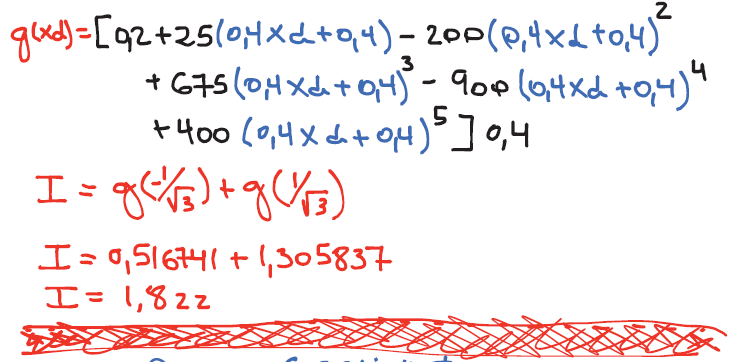 g(xd)=[0,2+25(0,4xd+0,4)-200(0,4xd+0,4)²
+675(0,4xd+0,4)³-900(0,4xd+0,4)⁴
+400(0,4xd+0,4)⁵]0,4
I=g(-1/√3)+g(1/√3)
I=0,516741+1,305837
I=1,822